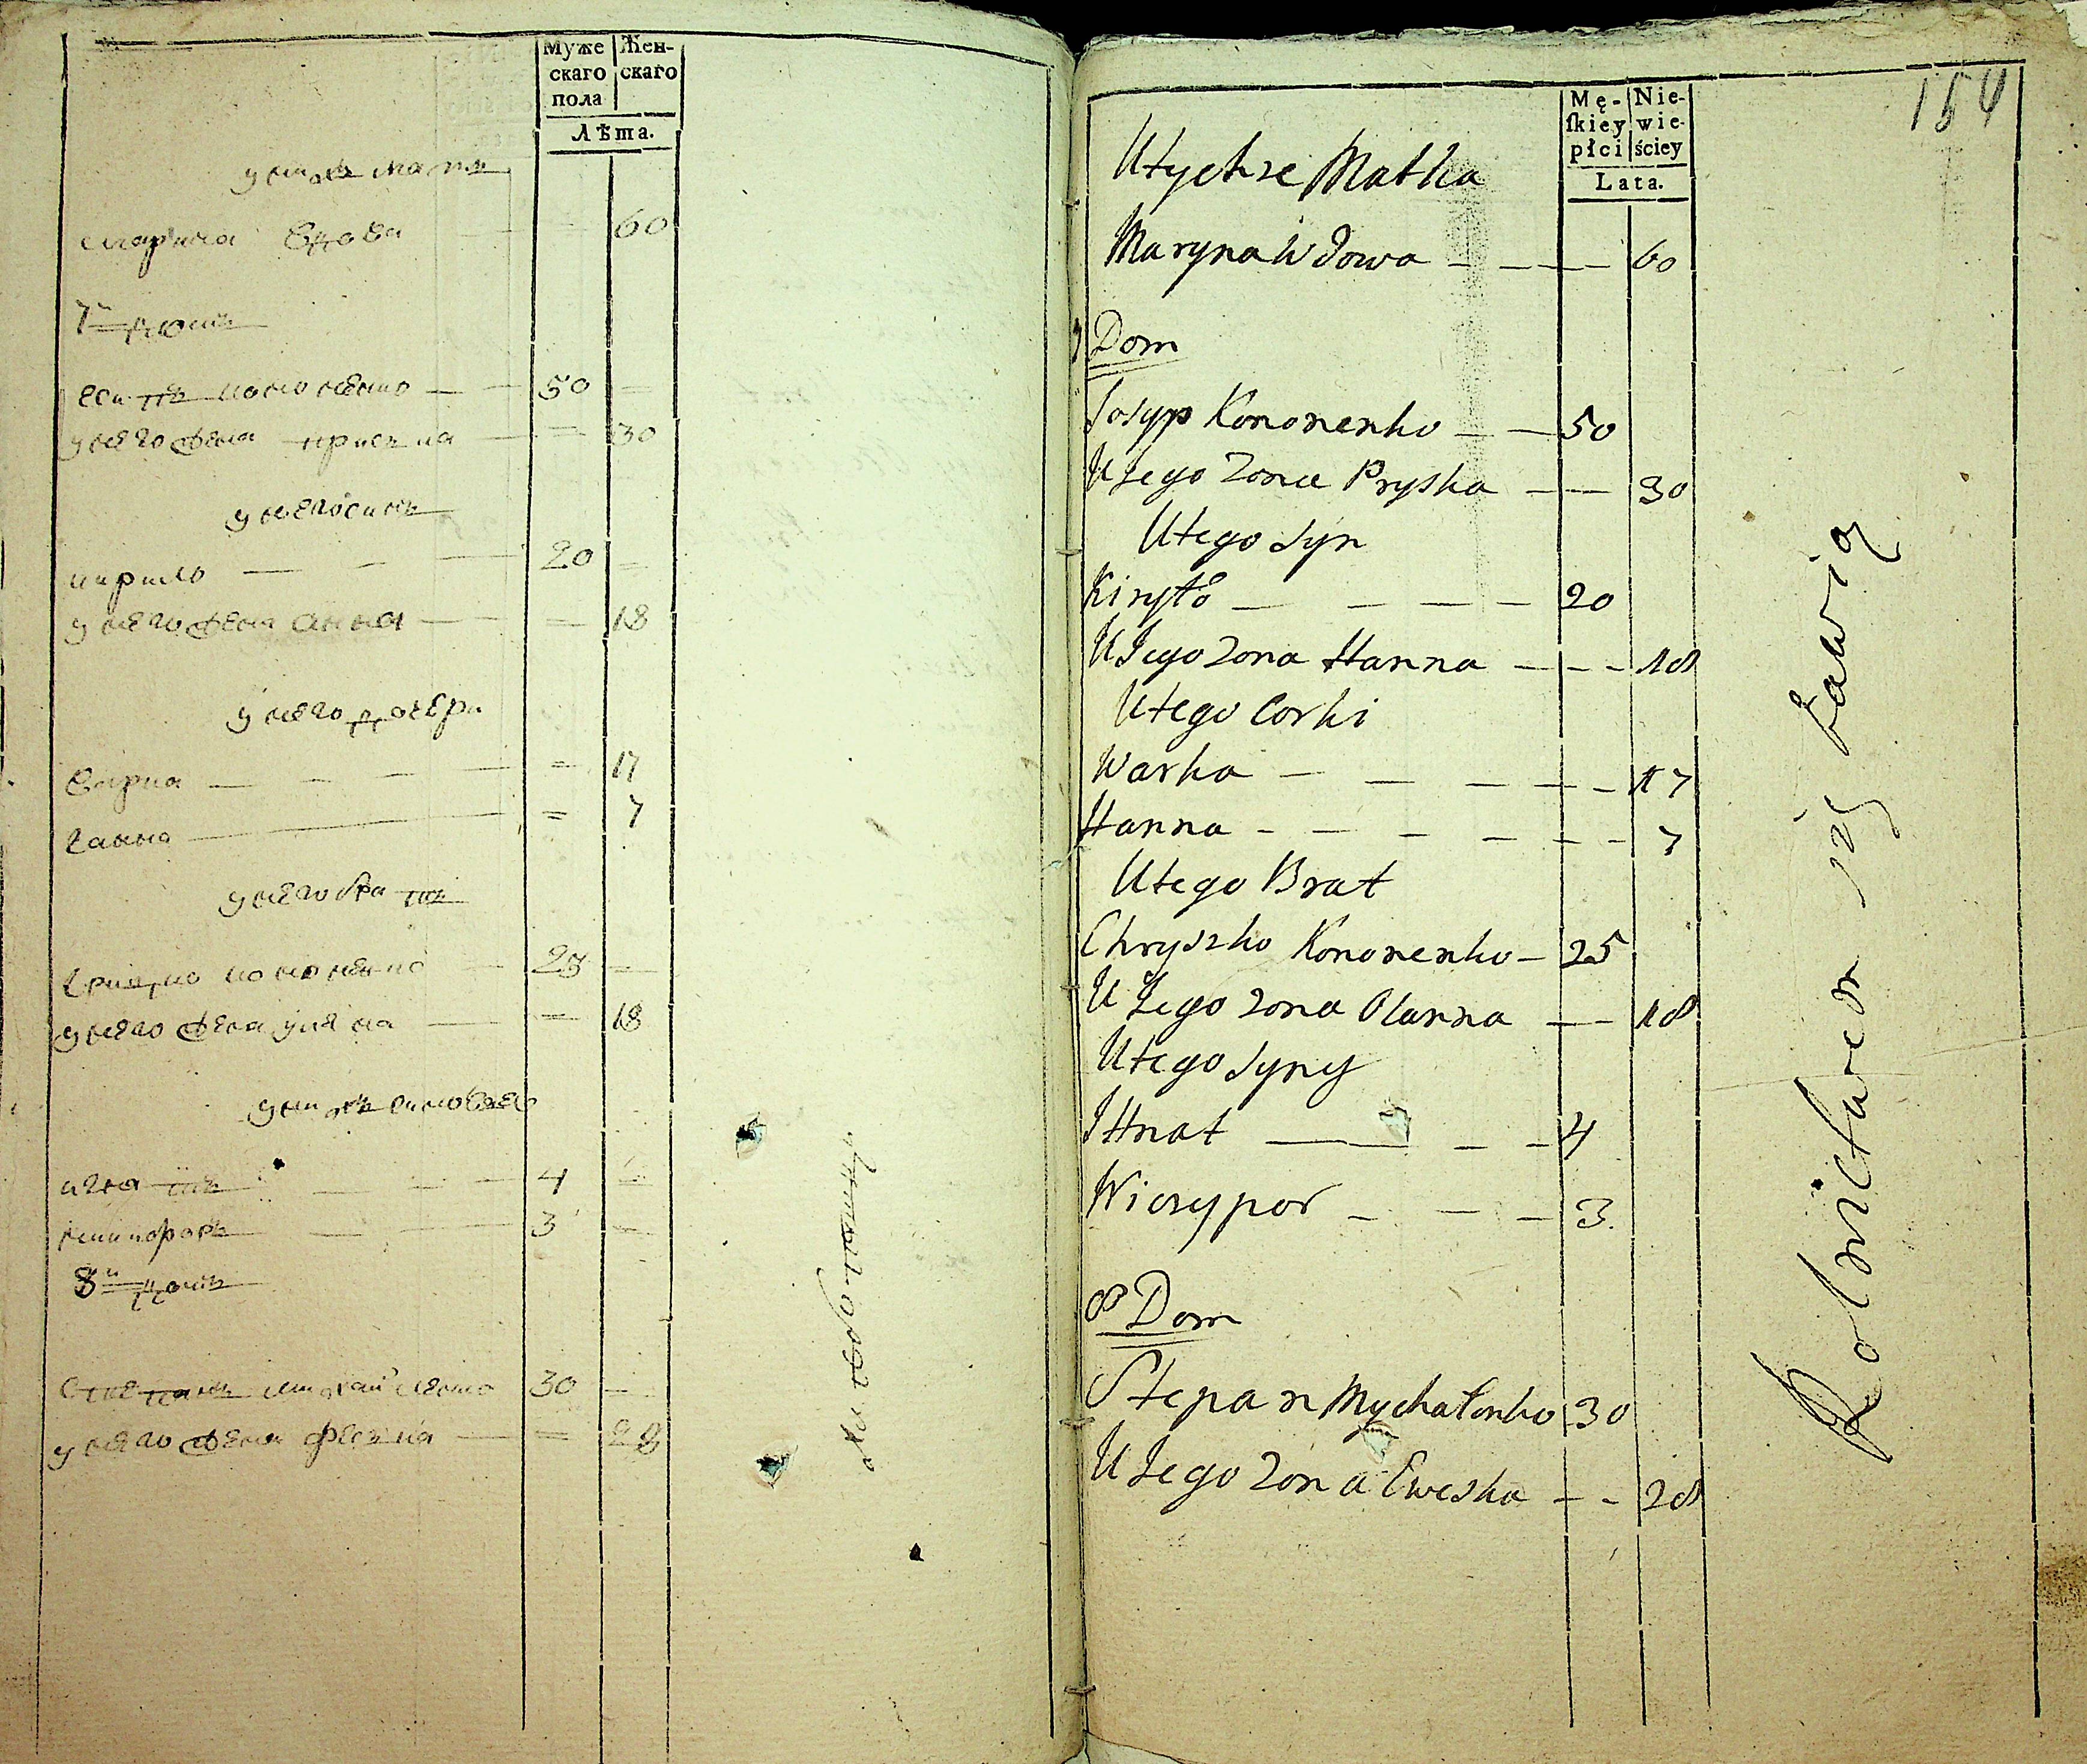 Муже
скаго
пола
Жен-
скаго
Лѣта.
у нихъ мать
марина вдова 60
7й домъ
есипъ кононенко 50
у него женаприська 30
у него синъ
кирило 20
у него жена анна 18
у него дочери
варка 17
ганна 7
у него братъ
грицко кононенко 25
у него жена уляна 18
у нихъ синовья
игнатъ 4
никифоръ 3
8й домъ
степанъ михайленко 30
у него жена феська 28
154
Mę-
ſkiey
płci
Nie-
wie-
ściey
Lata.
U tychże Matka
Maryna Wdowa 60
7 Dom
Josyp Kononenko 50
U Jego Zona Pryska 30
U tego Syn
Kiryło 20
U Jego zona Hanna 18
U tego Corki
Warka 17
Hanna 7
U tego Brat
Chryszko Kononenko 25
U Jego zona Olanna 18
U tego Syny
JHnat 4
Niczypor 3
8 Dom
Stepan Mychałonko 30
U Jego Zona Eweska 28
Rolnictwem się bawią